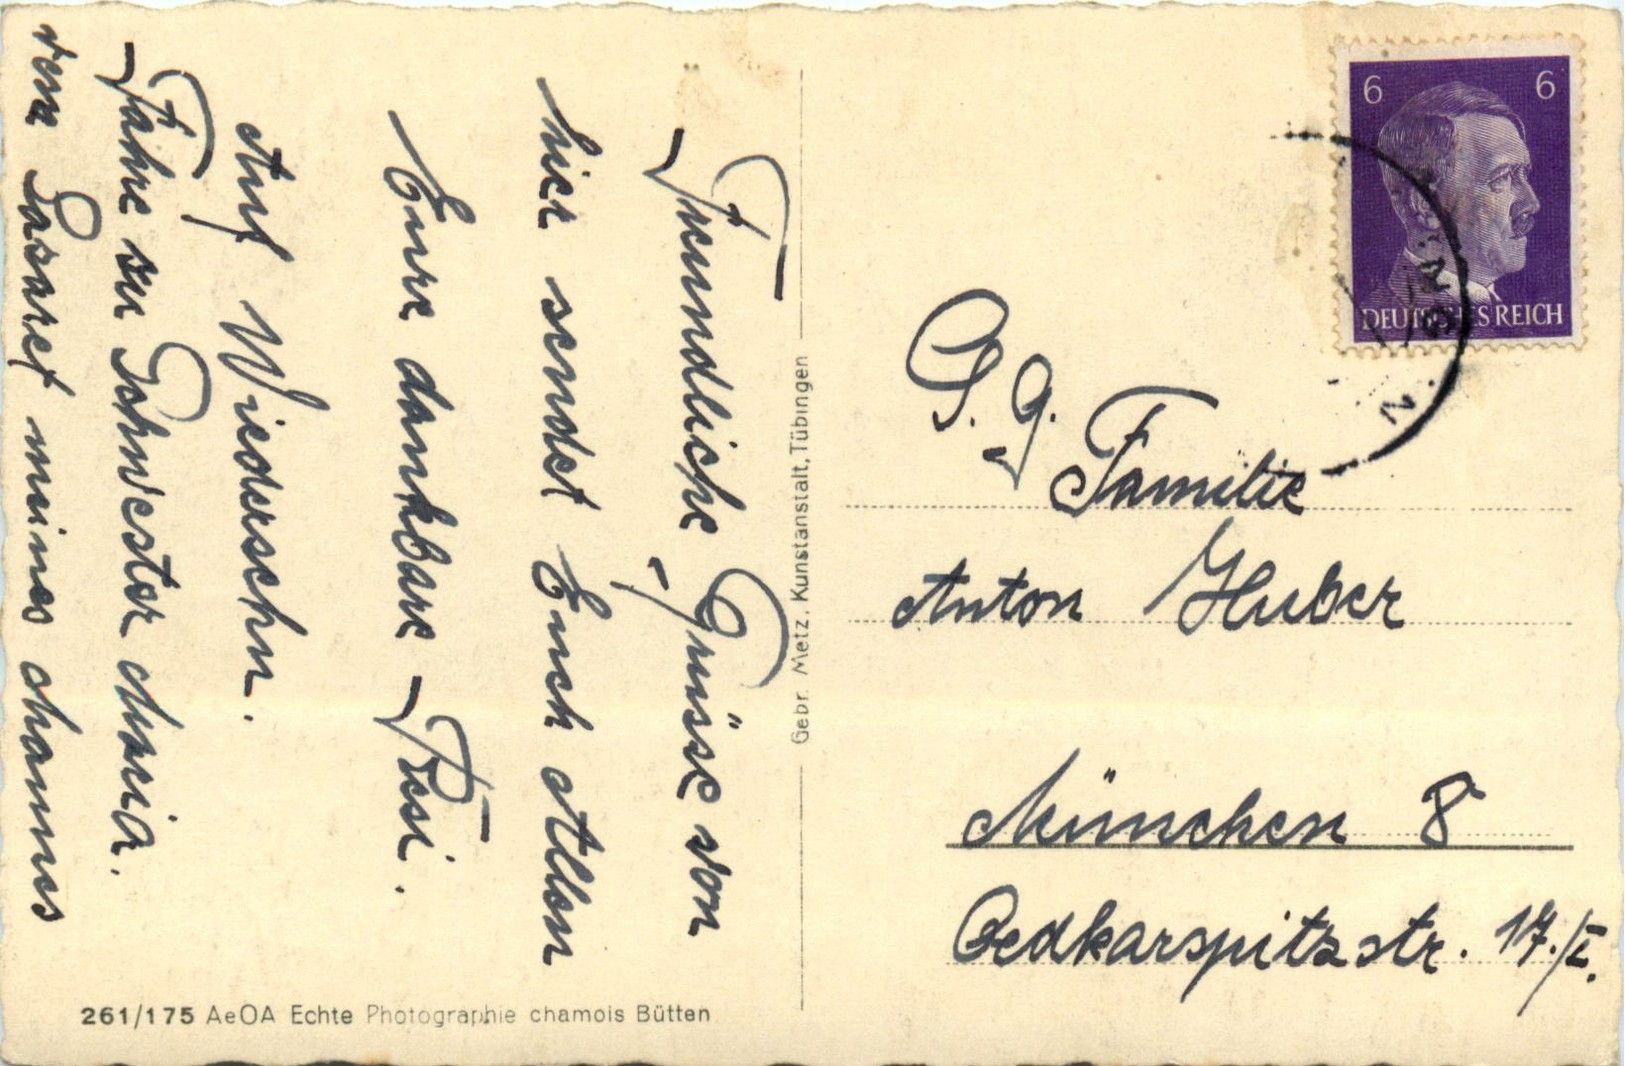 Freundliche Grüsse von
hier sendet Euch Allen
Eure dankbare Resi.
Auf Wiedersehn.
Fahre zu Schwester Maria.
vom Lasaret meines Mannes
Gebr. Metz, Kunstanstalt, Tübingen
261/175 AeOA Echte Photographie chamois Bütten
6 6
DEUTSCHES REICH
S. g.
Familie
Anton Huber
München 8
Oedkarspitzstr. 17./I.